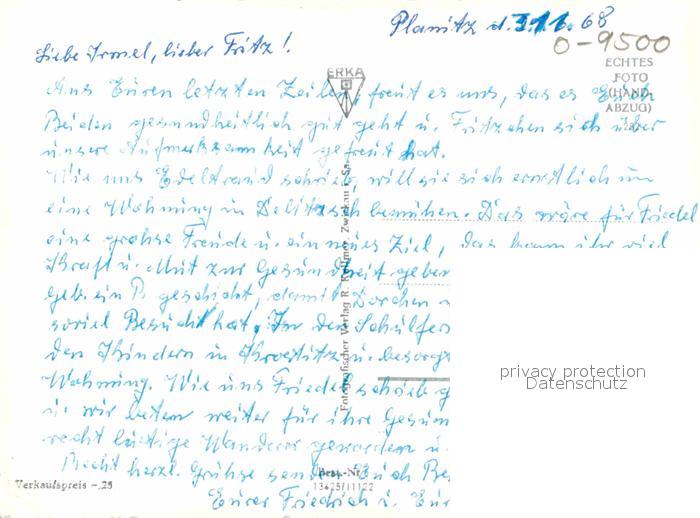 Planitz d. 3.11.68
0-9500
Liebe Irmel, lieber Fritz!
ERKA
ECHTES
FOTO
(HAND-
ABZUG)
Aus Euren letzten Zeilen, freut es uns, das es Euch
Beiden gesundheitlich gut geht u. Fritzchen sich über
unsere Aufmerksamkeit gefreut hat.
Wie uns Edeltraud schrieb, will sie sich ernstlich um
eine Wohnung in Delitzsch bemühen. Das wäre für Friedel
eine grohse Freude u. ein neues Ziel, das kann ihr viel
Kraft u. Mut zur Gesundheit geben
Geb. ein P. geschickt, damit Dorchen
soviel Besuch hat. In den Schulfer
den Kindern in u. besorg
Wohnung. Wie uns Friedel schrieb g
u. wir beten weiter für ihre Gesun
recht lustige Wanderer geworden u.
Recht herzl. Grühse senden Euch Be
Eurer Friedrich u. Eur
Fotografischer Verlag R. Zwickau i. Sa.
Verkaufspreis -,25
Best.-Nr.
13425/11122
privacy protection
Datenschutz